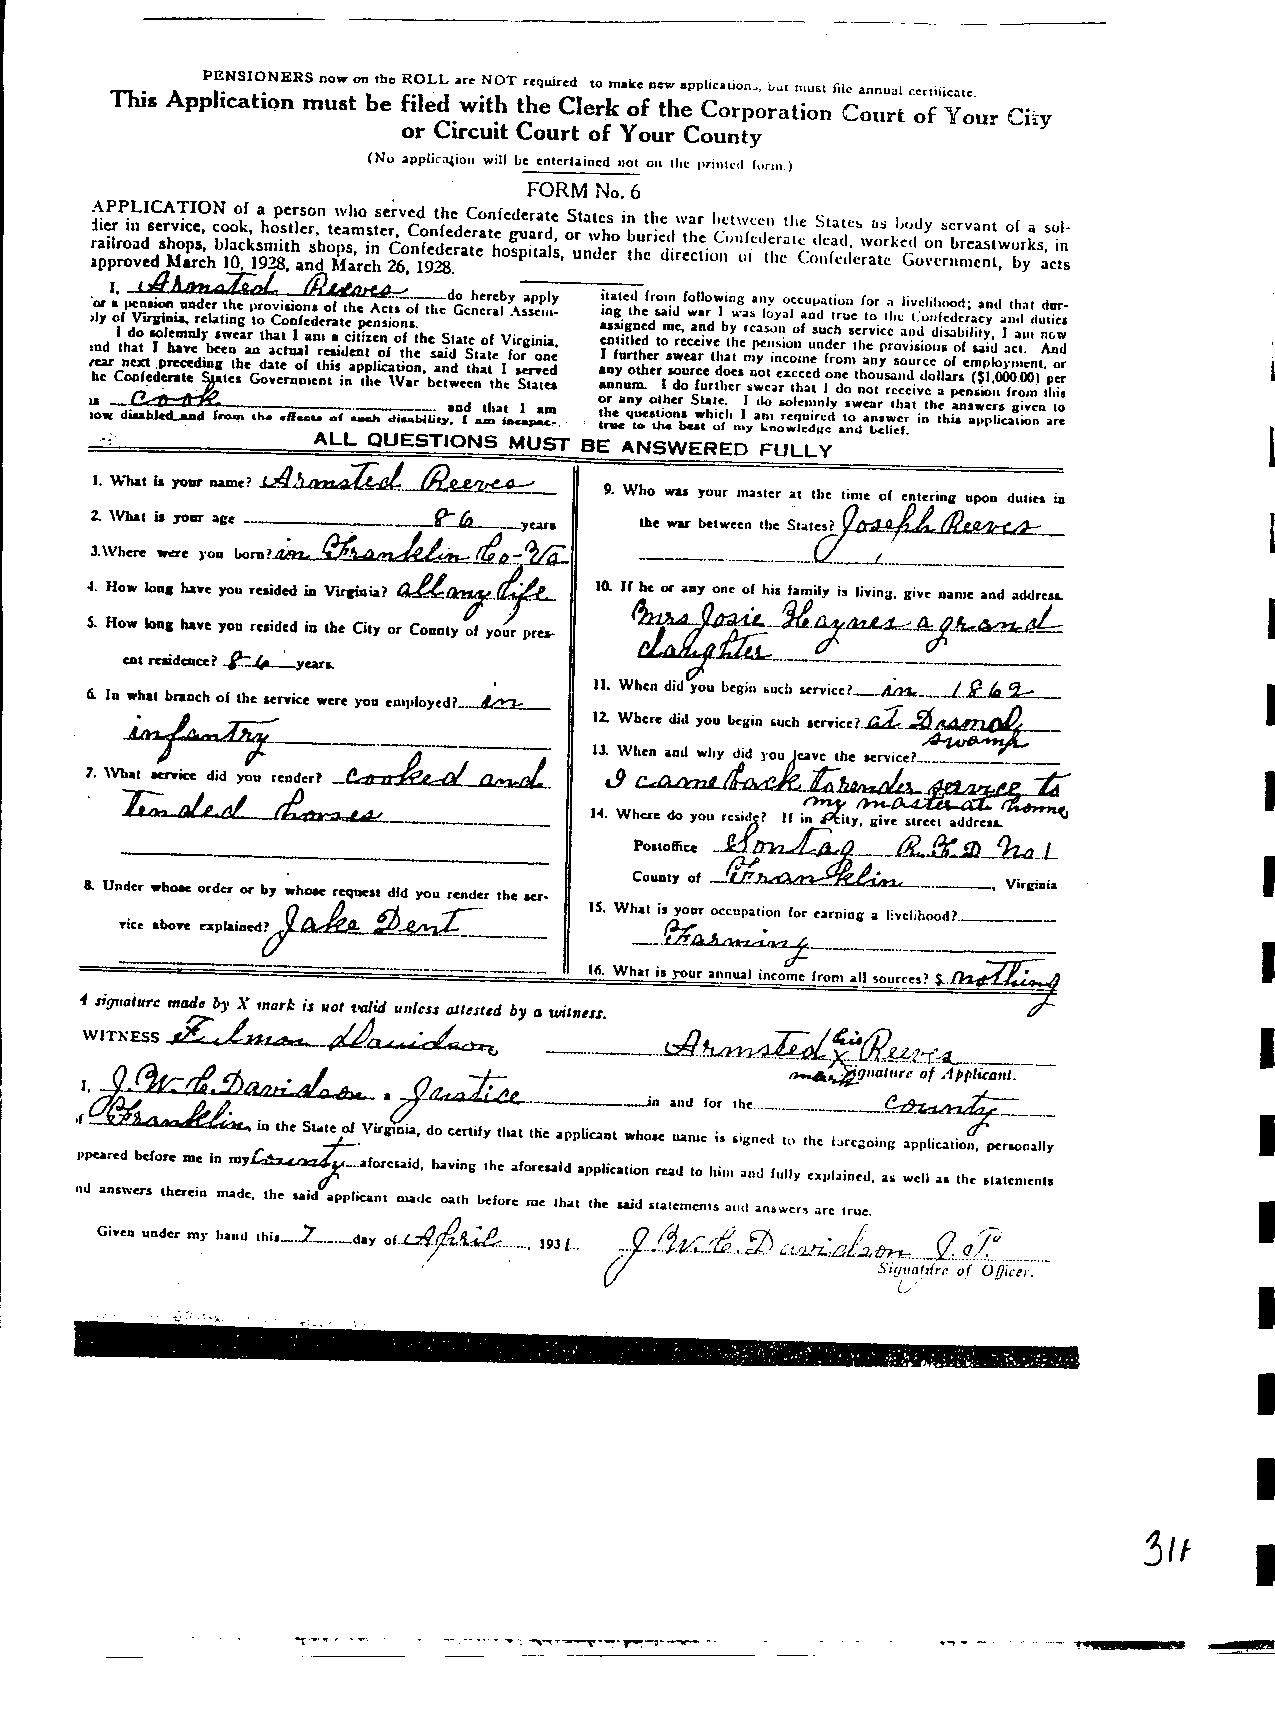 PENSIONERS now on the ROLL are NOT required to make new applications, but must file annual certificate.
This Application must be filed with the Clerk of the Corporation Court of Your City
or Circuit Court of Your County
(No application will be entertained not on the printed form.)
FORM No. 6
APPLICATION of a person who served the Confederate States in the war between the States as body servant of a sol-
dier in service, cook, hostler, teamster, Confederate guard, or who buried the Confederate dead, worked on breastworks, in
railroad shops, blacksmith shops, in Confederate hospitals, under the direction of the Confederate Government, by acts
approved March 10, 1928, and March 26, 1928.
I, Armsted Reeves do hereby apply
or a pension under the provisions of the Acts of the General Assem-
ly of Virginia, relating to Confederate pensions.
I do solemnly swear that I am a citizen of the State of Virginia,
nd that I have been an actual resident of the said State for one
year next preceding the date of this application, and that I served
he Confederate States Government in the War between the States
as Cook and that I am
now disabled and from the effects of such disability, I am incapac-
itated from following any occupation for a livelihood; and that dur-
ing the said war I was loyal and true to the Confederacy and duties
assigned me, and by reason of such service and disability, I am now
entitled to receive the pension under the provisions of said act. And
I further swear that my income from any source of employment, or
any other source does not exceed one thousand dollars ($1,000.00) per
annum. I do further swear that I do not receive a pension from this
or any other State. I do solemnly swear that the answers given to
the questions which I am required to answer in this application are
true to the best of my knowledge and belief.
ALL QUESTIONS MUST BE ANSWERED FULLY
1. What is your name? Armsted Reeves
2. What is your age 86 years
3. Where were you born? in Franklin Co-Va
4. How long have you resided in Virginia? all my life
5. How long have you resided in the City or County of your pres-
ent residence? 86 years.
6. In what branch of the service were you employed? in
infantry
7. What service did you render? Cooked and
Tended horses
8. Under whose order or by whose request did you render the ser-
vice above explained? Jake Dent
9. Who was your master at the time of entering upon duties in
the war between the States? Joseph Reeves
10. If he or any one of his family is living, give name and address.
Mrs Josie Haynes a grand
daughter
11. When did you begin such service? in 1862
12. Where did you begin such service? at Dismol
swamp
13. When and why did you leave the service?
I came back to render service to
my master at home
14. Where do you reside? If in city, give street address.
Postoffice Sontag R.F.D No 1
County of Franklin, Virginia
15. What is your occupation for earning a livelihood?
Farming
16. What is your annual income from all sources? $ nothing
A signature made by X mark is not valid unless attested by a witness.
WITNESS Filmon Davidson
Armsted his X Reeves
mark Signature of Applicant.
I, J. W. C. Davidson. Justice in and for the county
of Franklin, in the State of Virginia, do certify that the applicant whose name is signed to the foregoing application, personally
ppeared before me in my County aforesaid, having the aforesaid application read to him and fully explained, as well as the statements
nd answers therein made, the said applicant made oath before me that the said statements and answers are true.
Given under my hand this 7 day of April, 1931. J. W. C. Davidson J. P.
Signature of Officer.